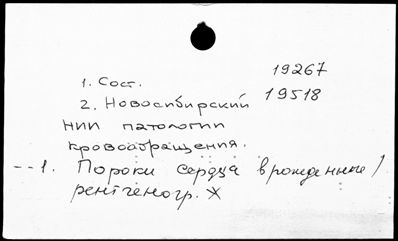 1. Сост. 19267
2. Новосибирский 19518
НИИ патологии
кровообращения.
--1. Пороки сердца врожденные /
рентгеногр. X